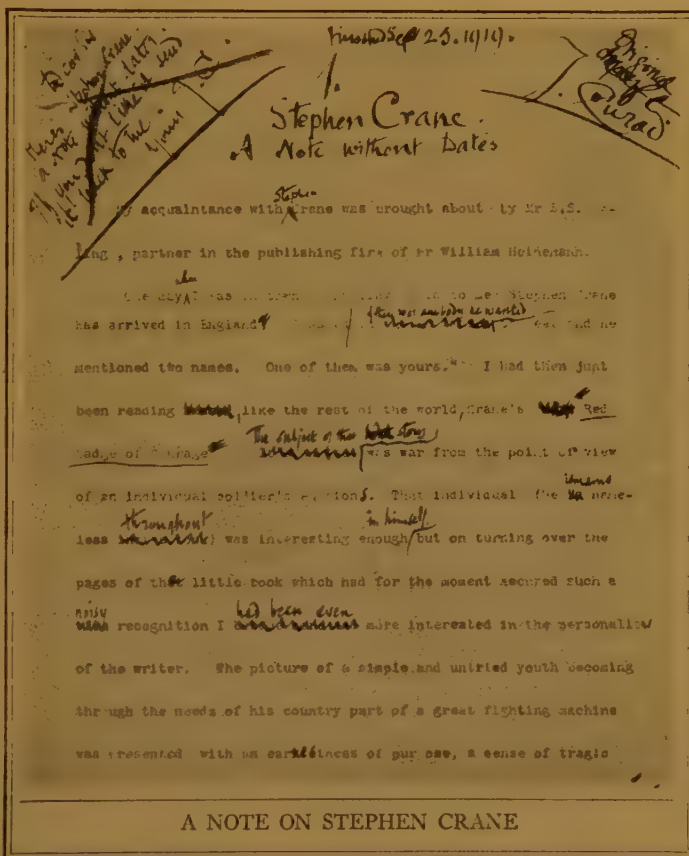 Finished Sep 25. 1919.
Original
Conrad
Here's Stephen Crane
a note without dates
if you don't like it send
it back to me
Yours
1.
Stephen Crane.
A Note without Dates
My acquaintance with Stephen Crane was brought about by Mr
ling, partner in the publishing firm of Mr William Heinemann.
to me: Stephen Crane
has arrived in England if there was anybody he wanted and he
mentioned two names. One of them was yours." I had then just
been reading, like the rest of the world, Crane's Red
Badge of Courage The subject of that story was war from the point of view
of an individual soldier's emotions. That individual (he remains name-
less throughout) was interesting enough in himself, but on turning over the
pages of that little book which had for the moment secured such a
noisy recognition I had been even more interested in the personality
of the writer. The picture of a simple and untried youth becoming
through the needs of his country part of a great fighting machine
was presented with an earnestness of purpose, a sense of tragic
A NOTE ON STEPHEN CRANE